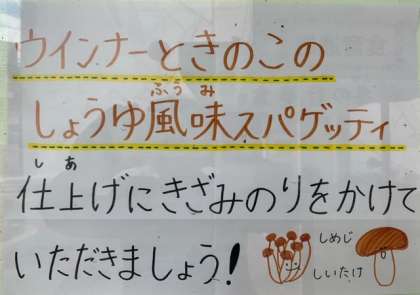 ウインナーときのこの
ふうみ
しょうゆ風味スパゲッティ
しあ
仕上げにきざみのりをかけて
いただきましょう!
しめじ
しいたけ